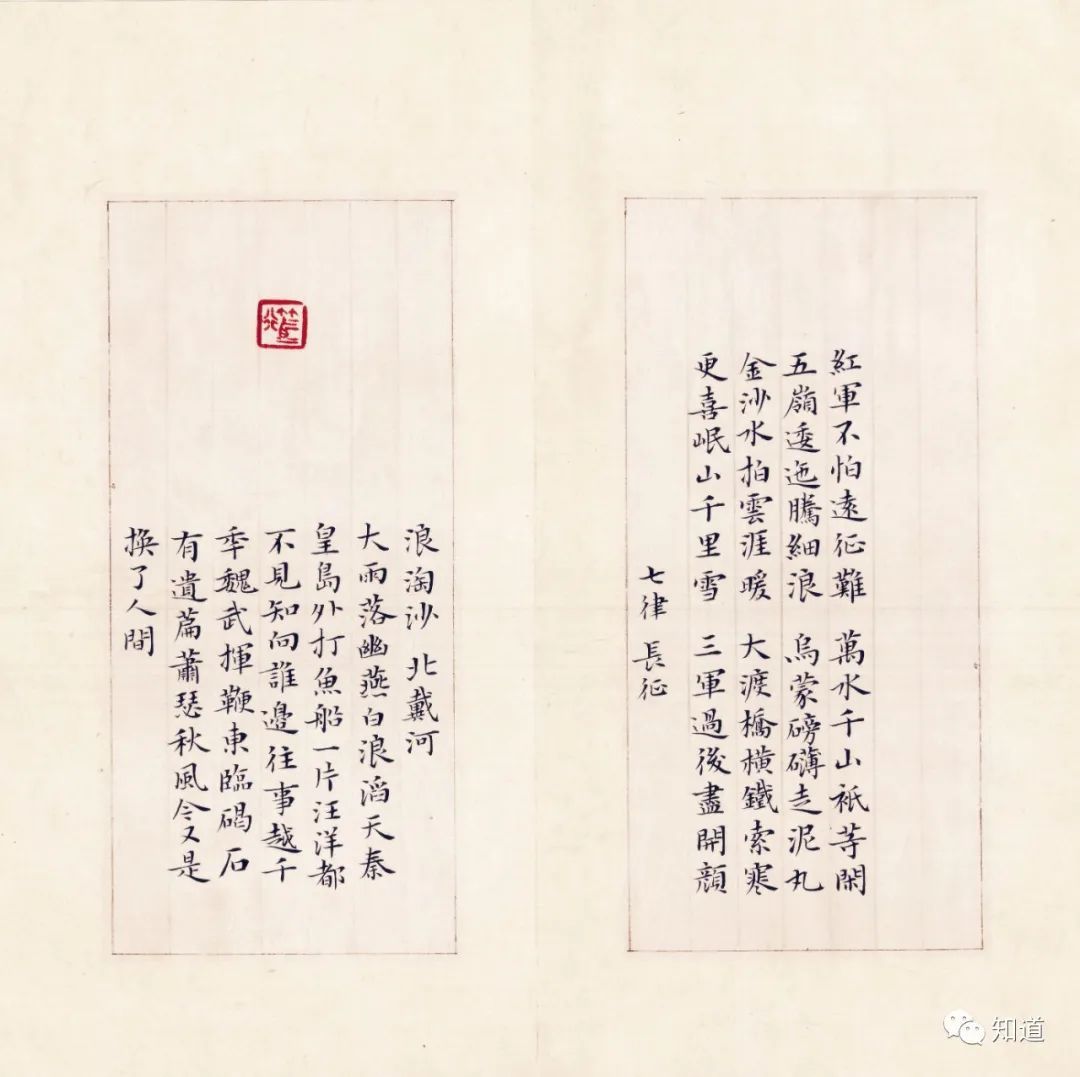 紅軍不怕遠征難 萬水千山祇等閑
五嶺逶迤騰細浪 烏蒙磅礴走泥丸
金沙水拍雲涯暖 大渡橋橫鐵索寒
更喜岷山千里雪 三軍過後盡開顏
七律 長征
浪淘沙 北戴河
大雨落幽燕白浪滔天秦
皇島外打魚船一片汪洋都
不見知向誰邊往事越千
年魏武揮鞭東臨碣石
有遺篇蕭瑟秋風今又是
換了人間
知道